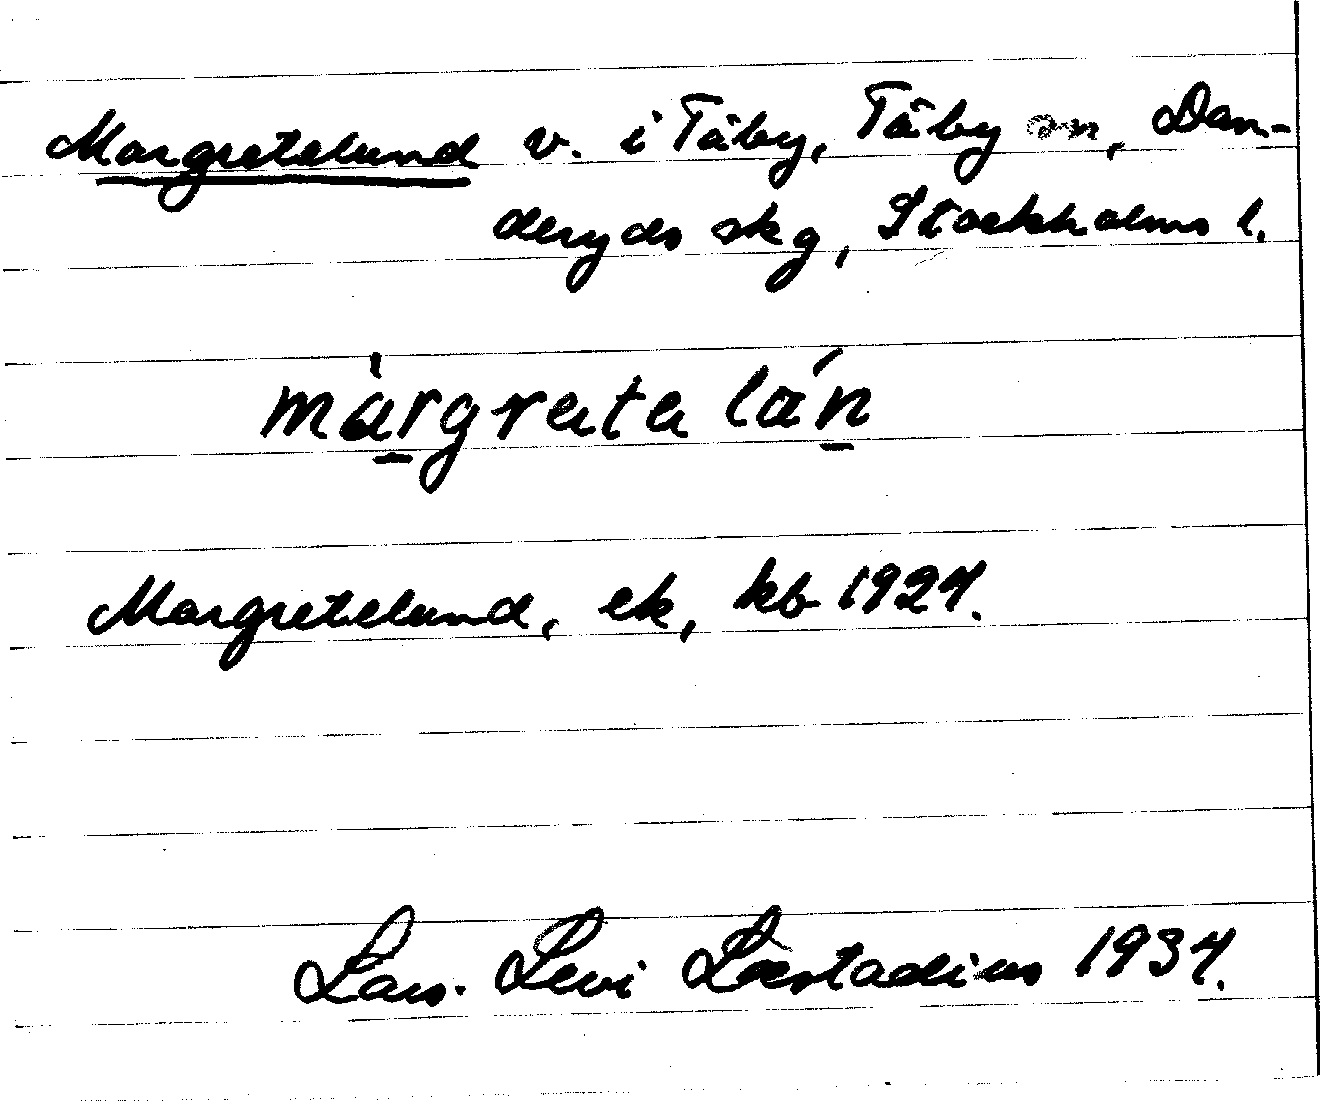 Margretelund v. i Täby, Täby sn, Dan-
deryds skg, Stockholms l.
màrgreta lán
Margretelund, ek, kb 1924.
Lars-Levi Læstadius 1934.